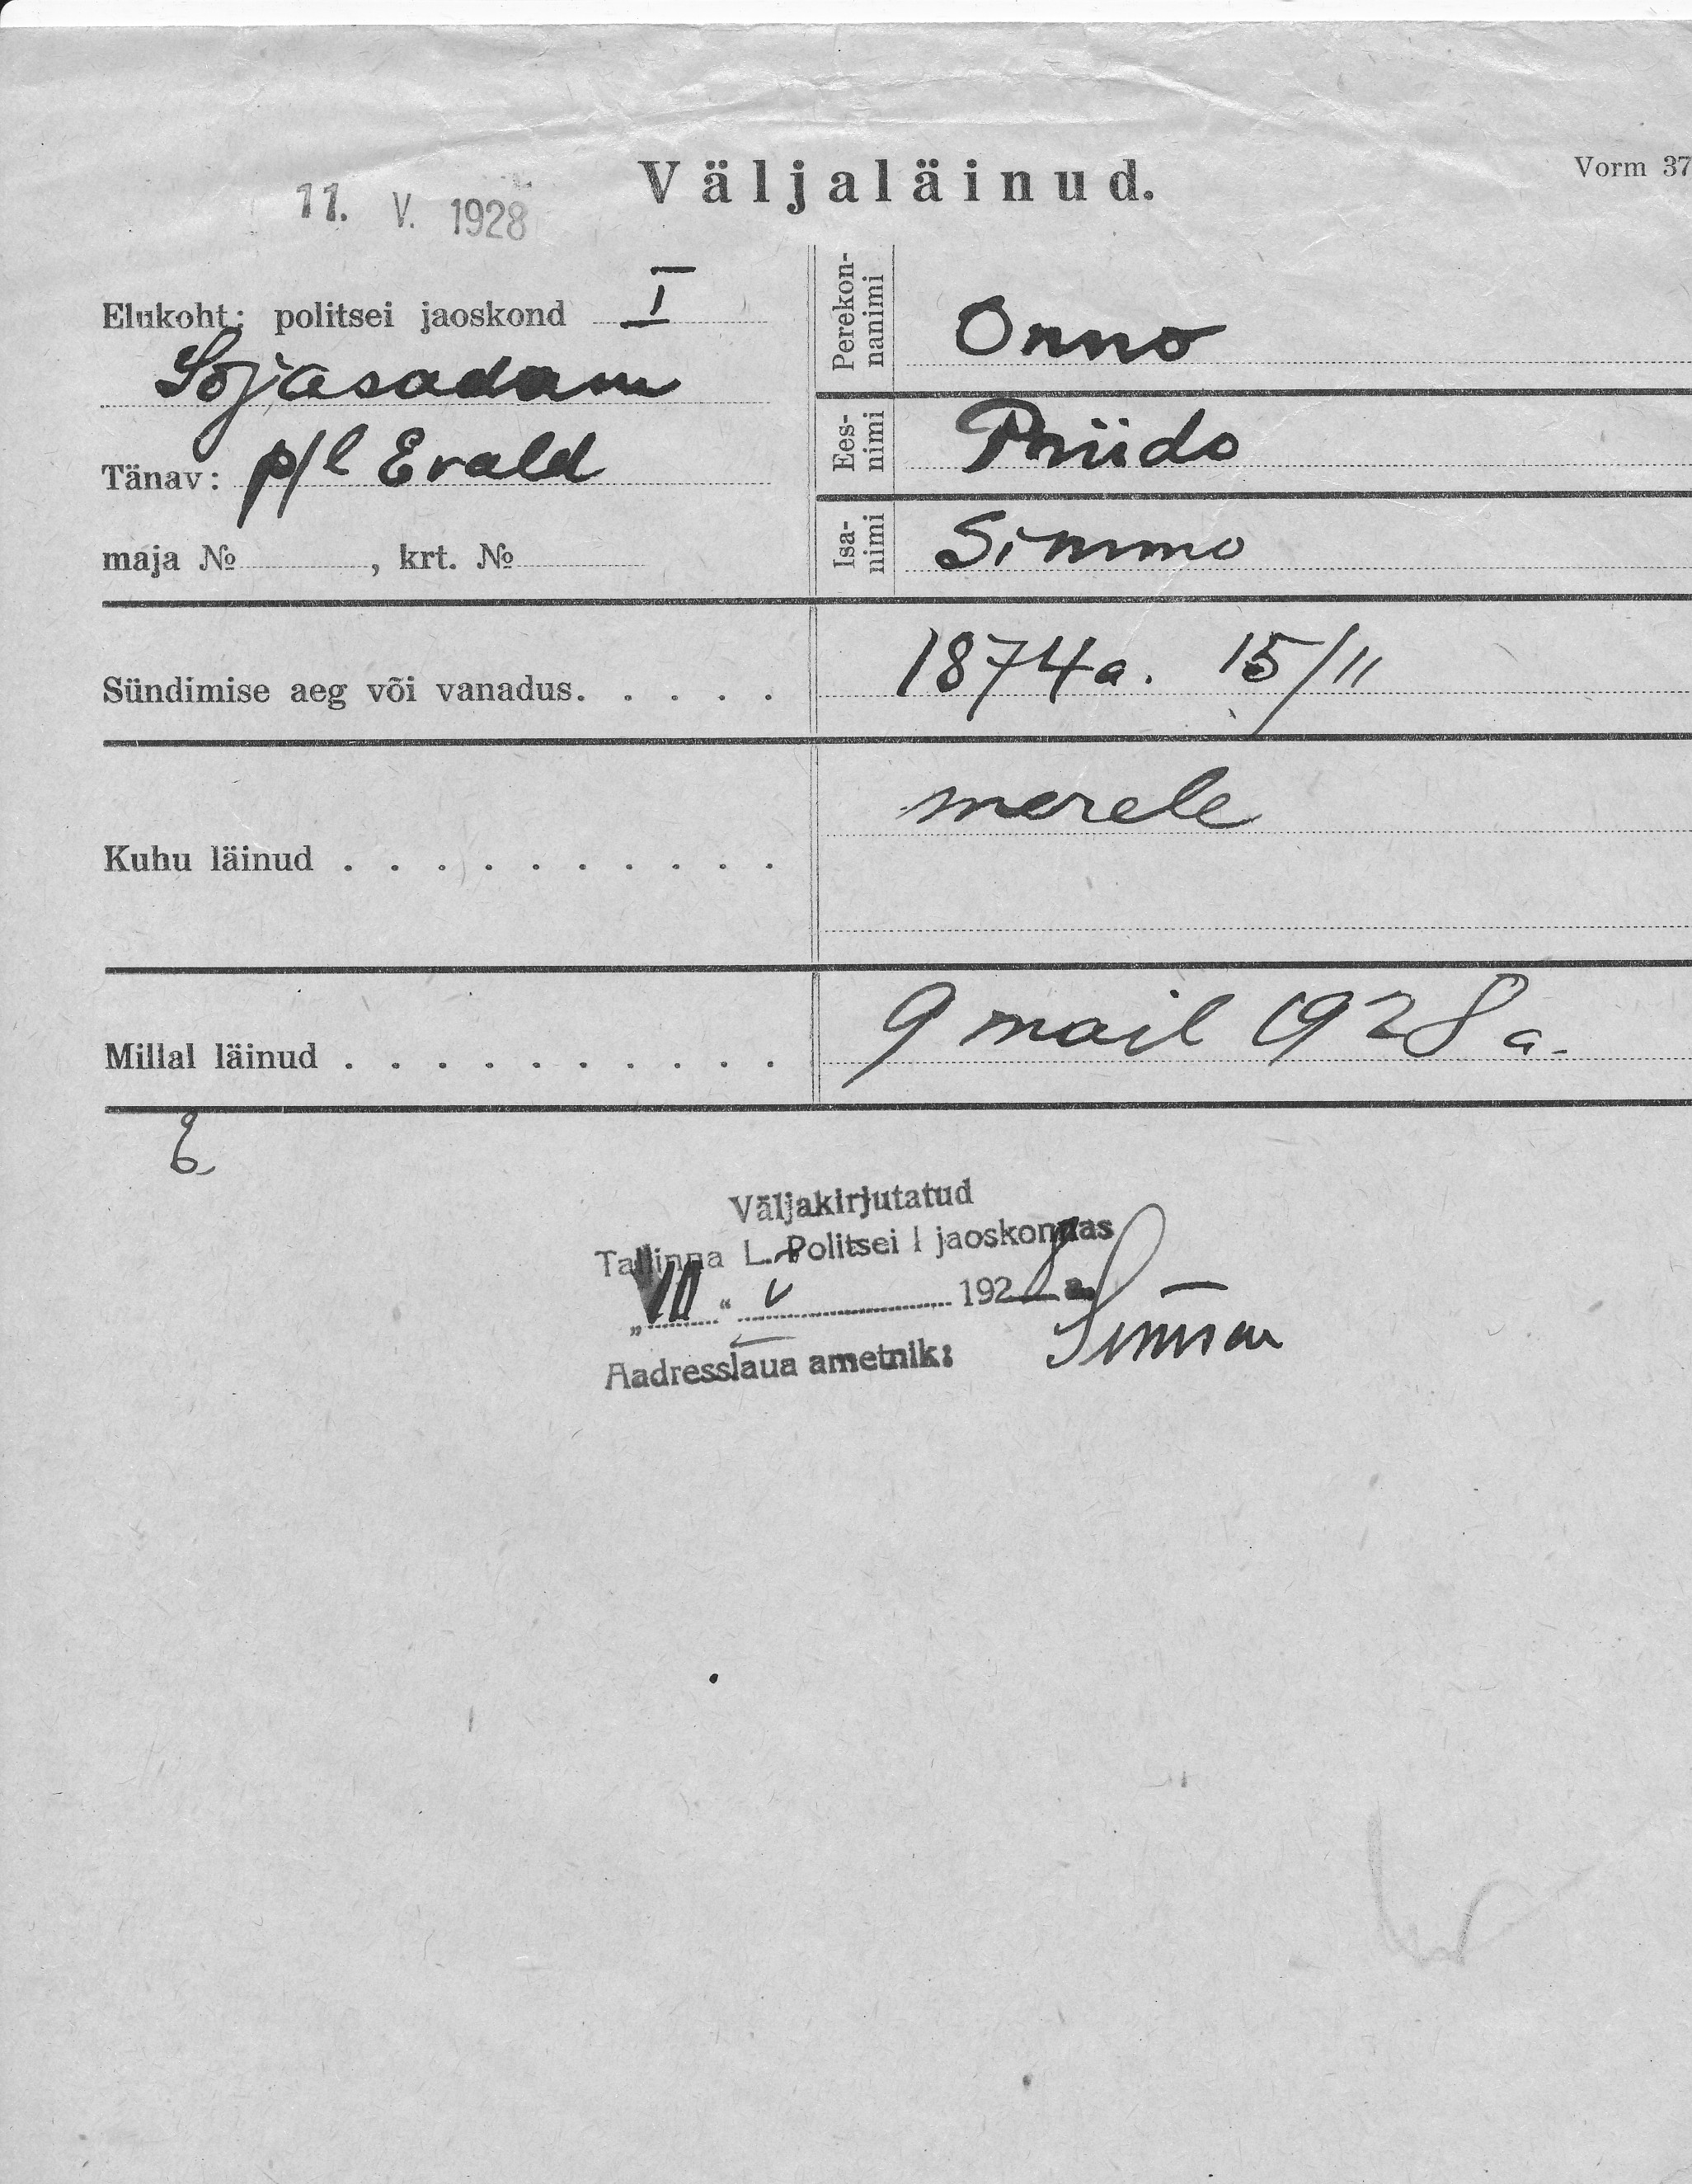 Väljaläinud.
Vorm 37
11. V. 1928
Elukoht: politsei jaoskond I
Sõjasadam
Tänav: p/l Evald
maja № , krt. №
Perekon-
nanimi
Onno
Ees-
nimi
Priido
Isa-
nimi
Simmo
Sündimise aeg või vanadus. . . . .
1874 a. 15/11
Kuhu läinud . . . . . . . . . .
merele
Millal läinud . . . . . . . . . .
9 mail 1928 a.
Väljakirjutatud
Tallinna L. Politsei I jaoskonnas
„10“ V 1928 a.
Aadresslaua ametnik: